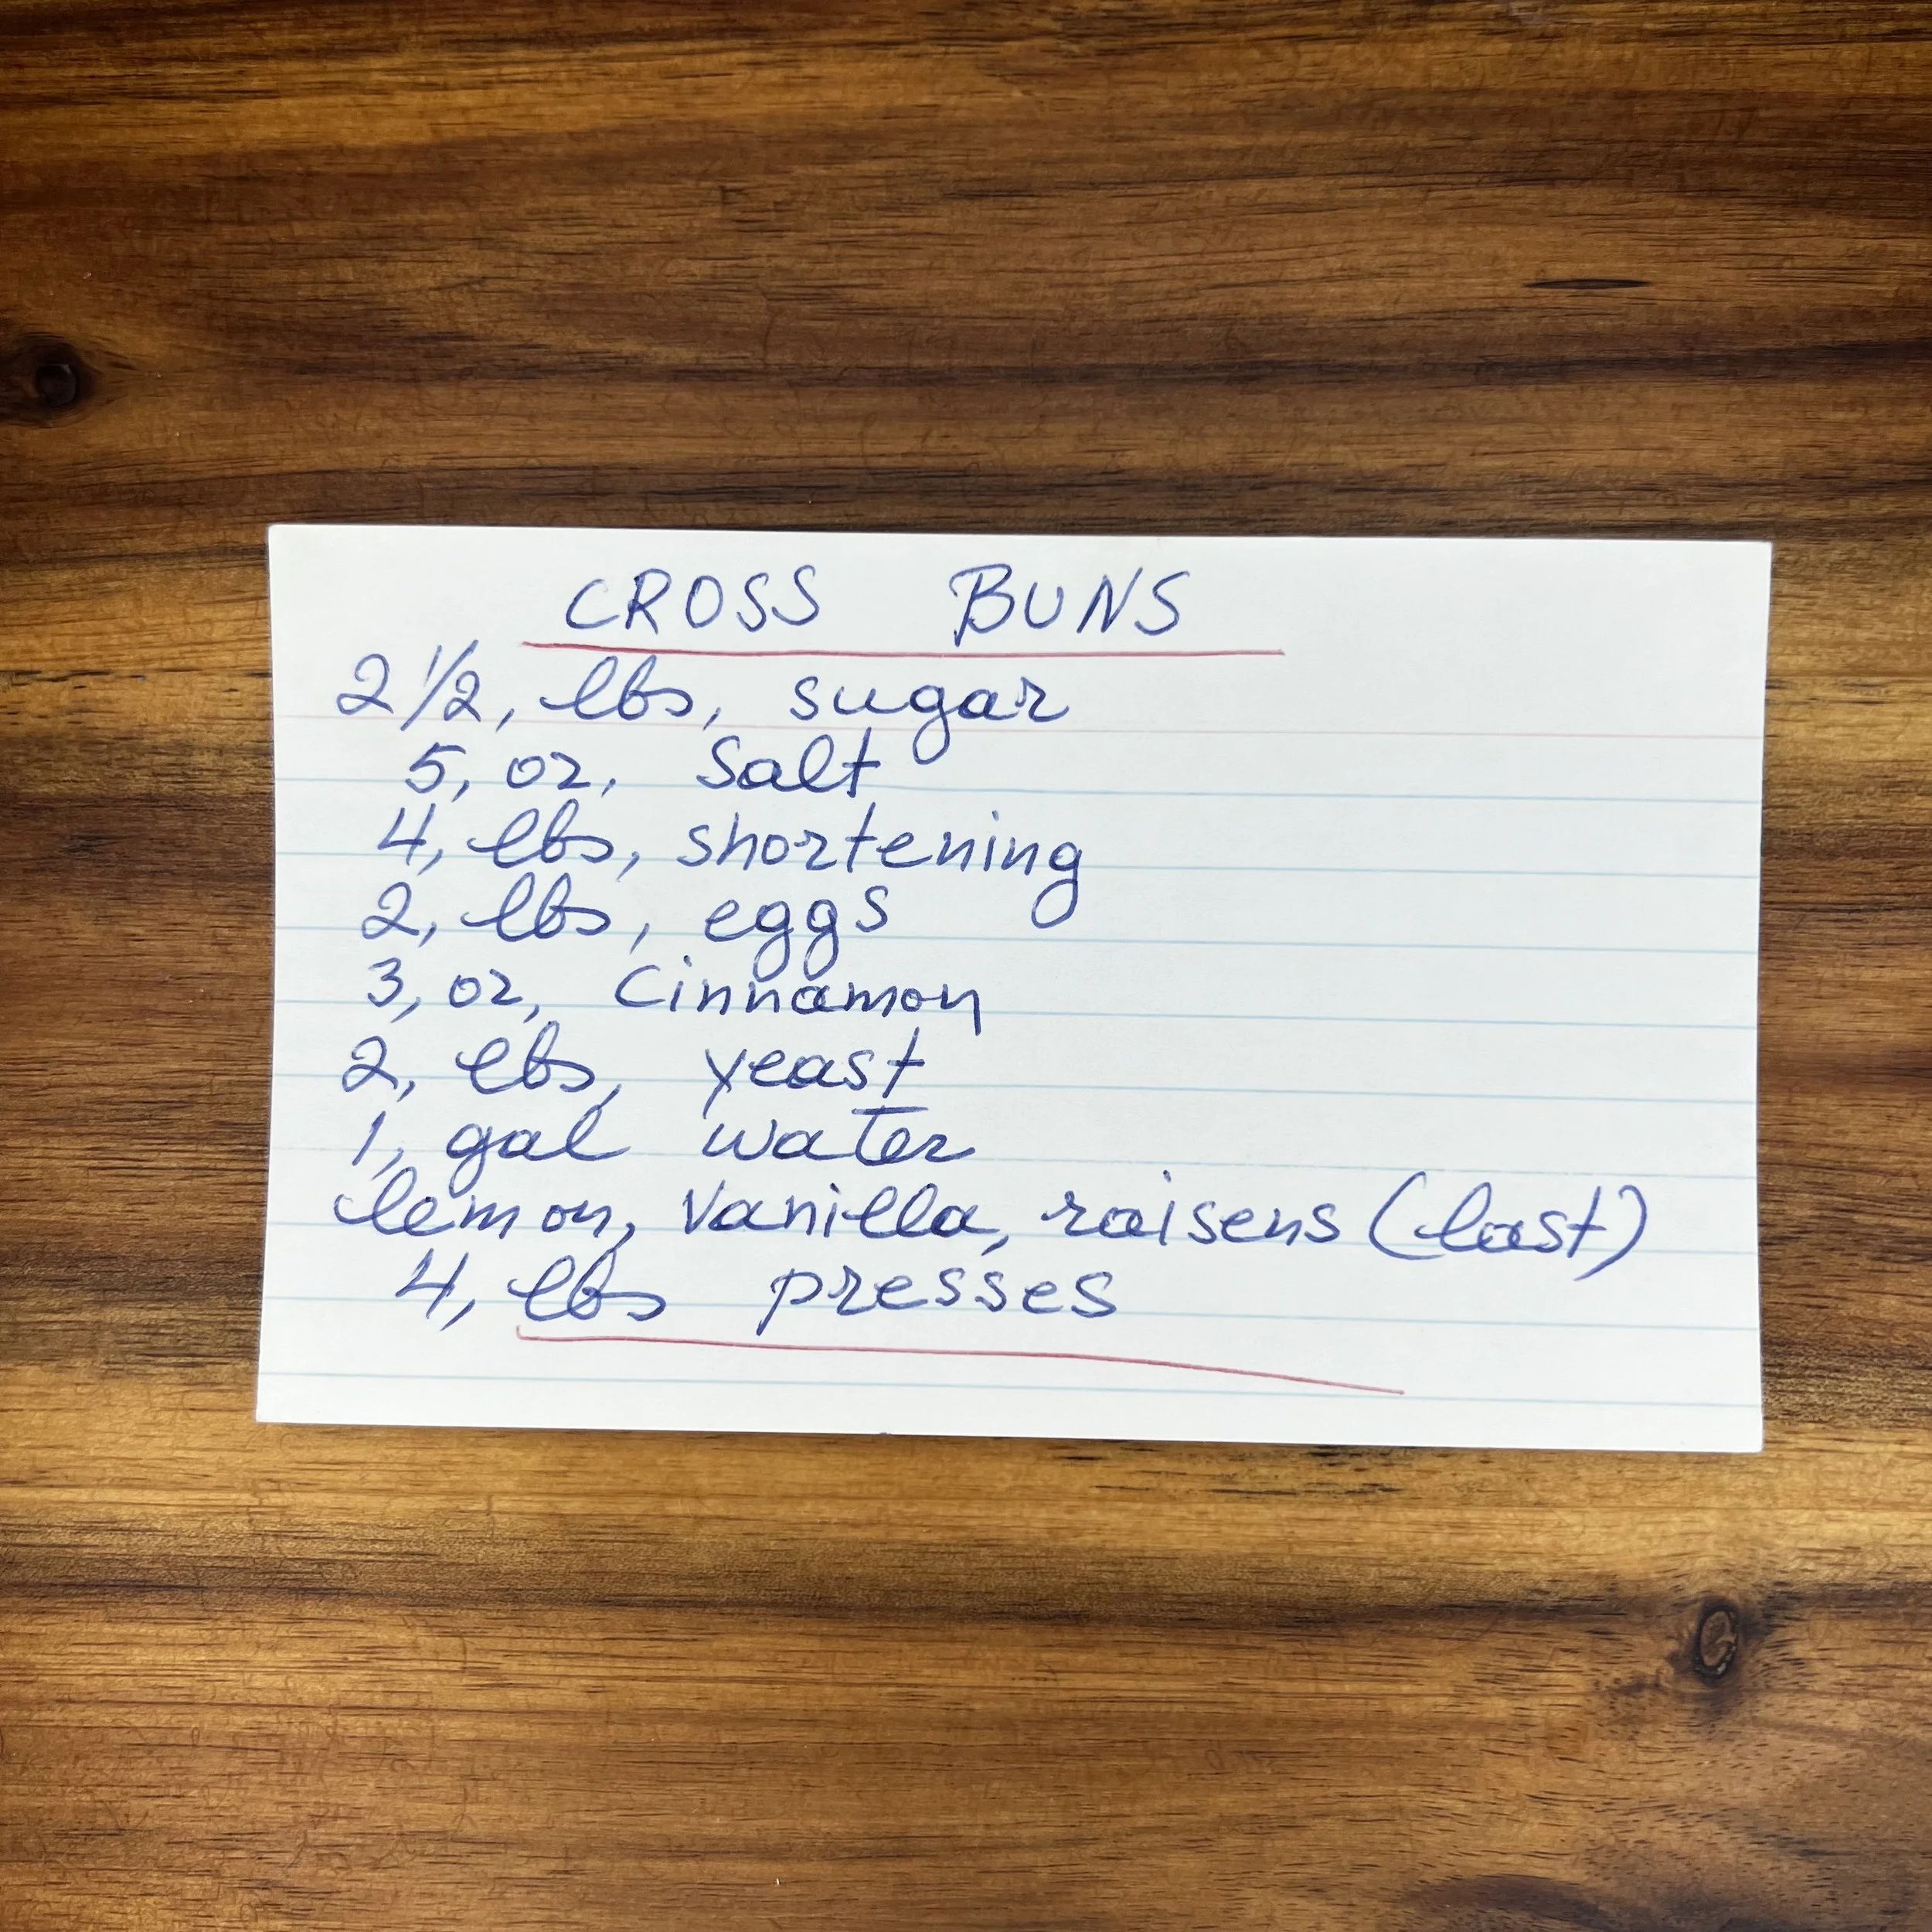 CROSS BUNS
2 1/2, lbs, sugar
5, oz, Salt
4, lbs, shortening
2, lbs, eggs
3, oz, Cinnamon
2, lbs, yeast
1, gal water
lemon, Vanilla, raisens (last)
4, lbs presses